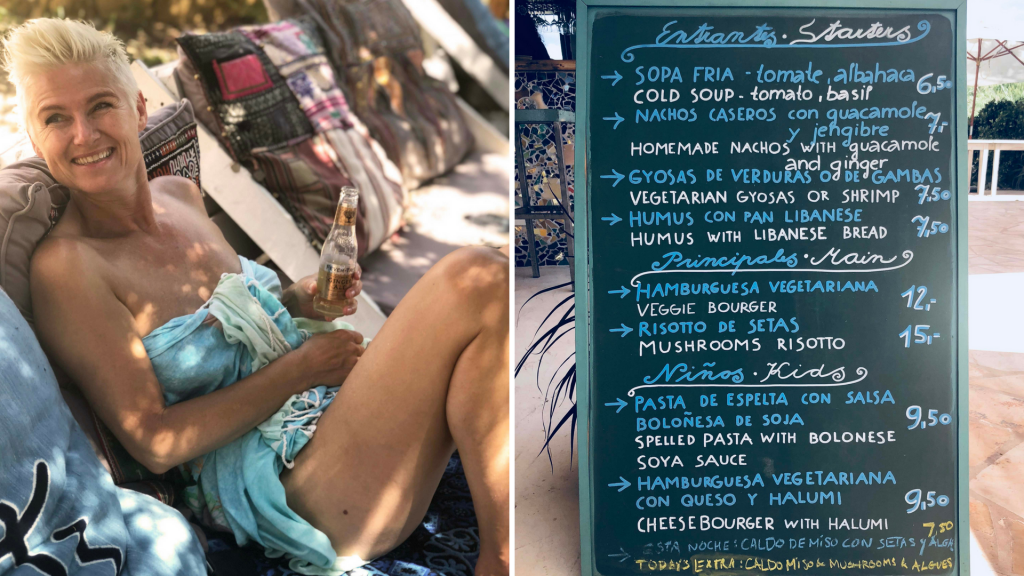 Entrantes · Starters
→ SOPA FRIA - tomate, albahaca
COLD SOUP - tomato, basil 6,50
→ NACHOS CASEROS con guacamole
y jengibre 7,-
HOMEMADE NACHOS WITH guacamole
and ginger
→ GYOSAS DE VERDURAS O DE GAMBAS
VEGETARIAN GYOSAS OR SHRIMP 7.50
→ HUMUS CON PAN LIBANESE
HUMUS WITH LIBANESE BREAD 7,50
Principales · Main
→ HAMBURGUESA VEGETARIANA
VEGGIE BOURGER 12,-
→ RISOTTO DE SETAS
MUSHROOMS RISOTTO 15,-
Niños · Kids
→ PASTA DE ESPELTA CON SALSA
BOLOÑESA DE SOJA 9,50
SPELLED PASTA WITH BOLONESE
SOYA SAUCE
→ HAMBURGUESA VEGETARIANA
CON QUESO Y HALUMI 9,50
CHEESEBOURGER WITH HALUMI
7,50
→ ESTA NOCHE: CALDO DE MISO CON SETAS Y ALGA
TODAYS EXTRA: CALDO MISO & MUSHROOMS & ALGUES